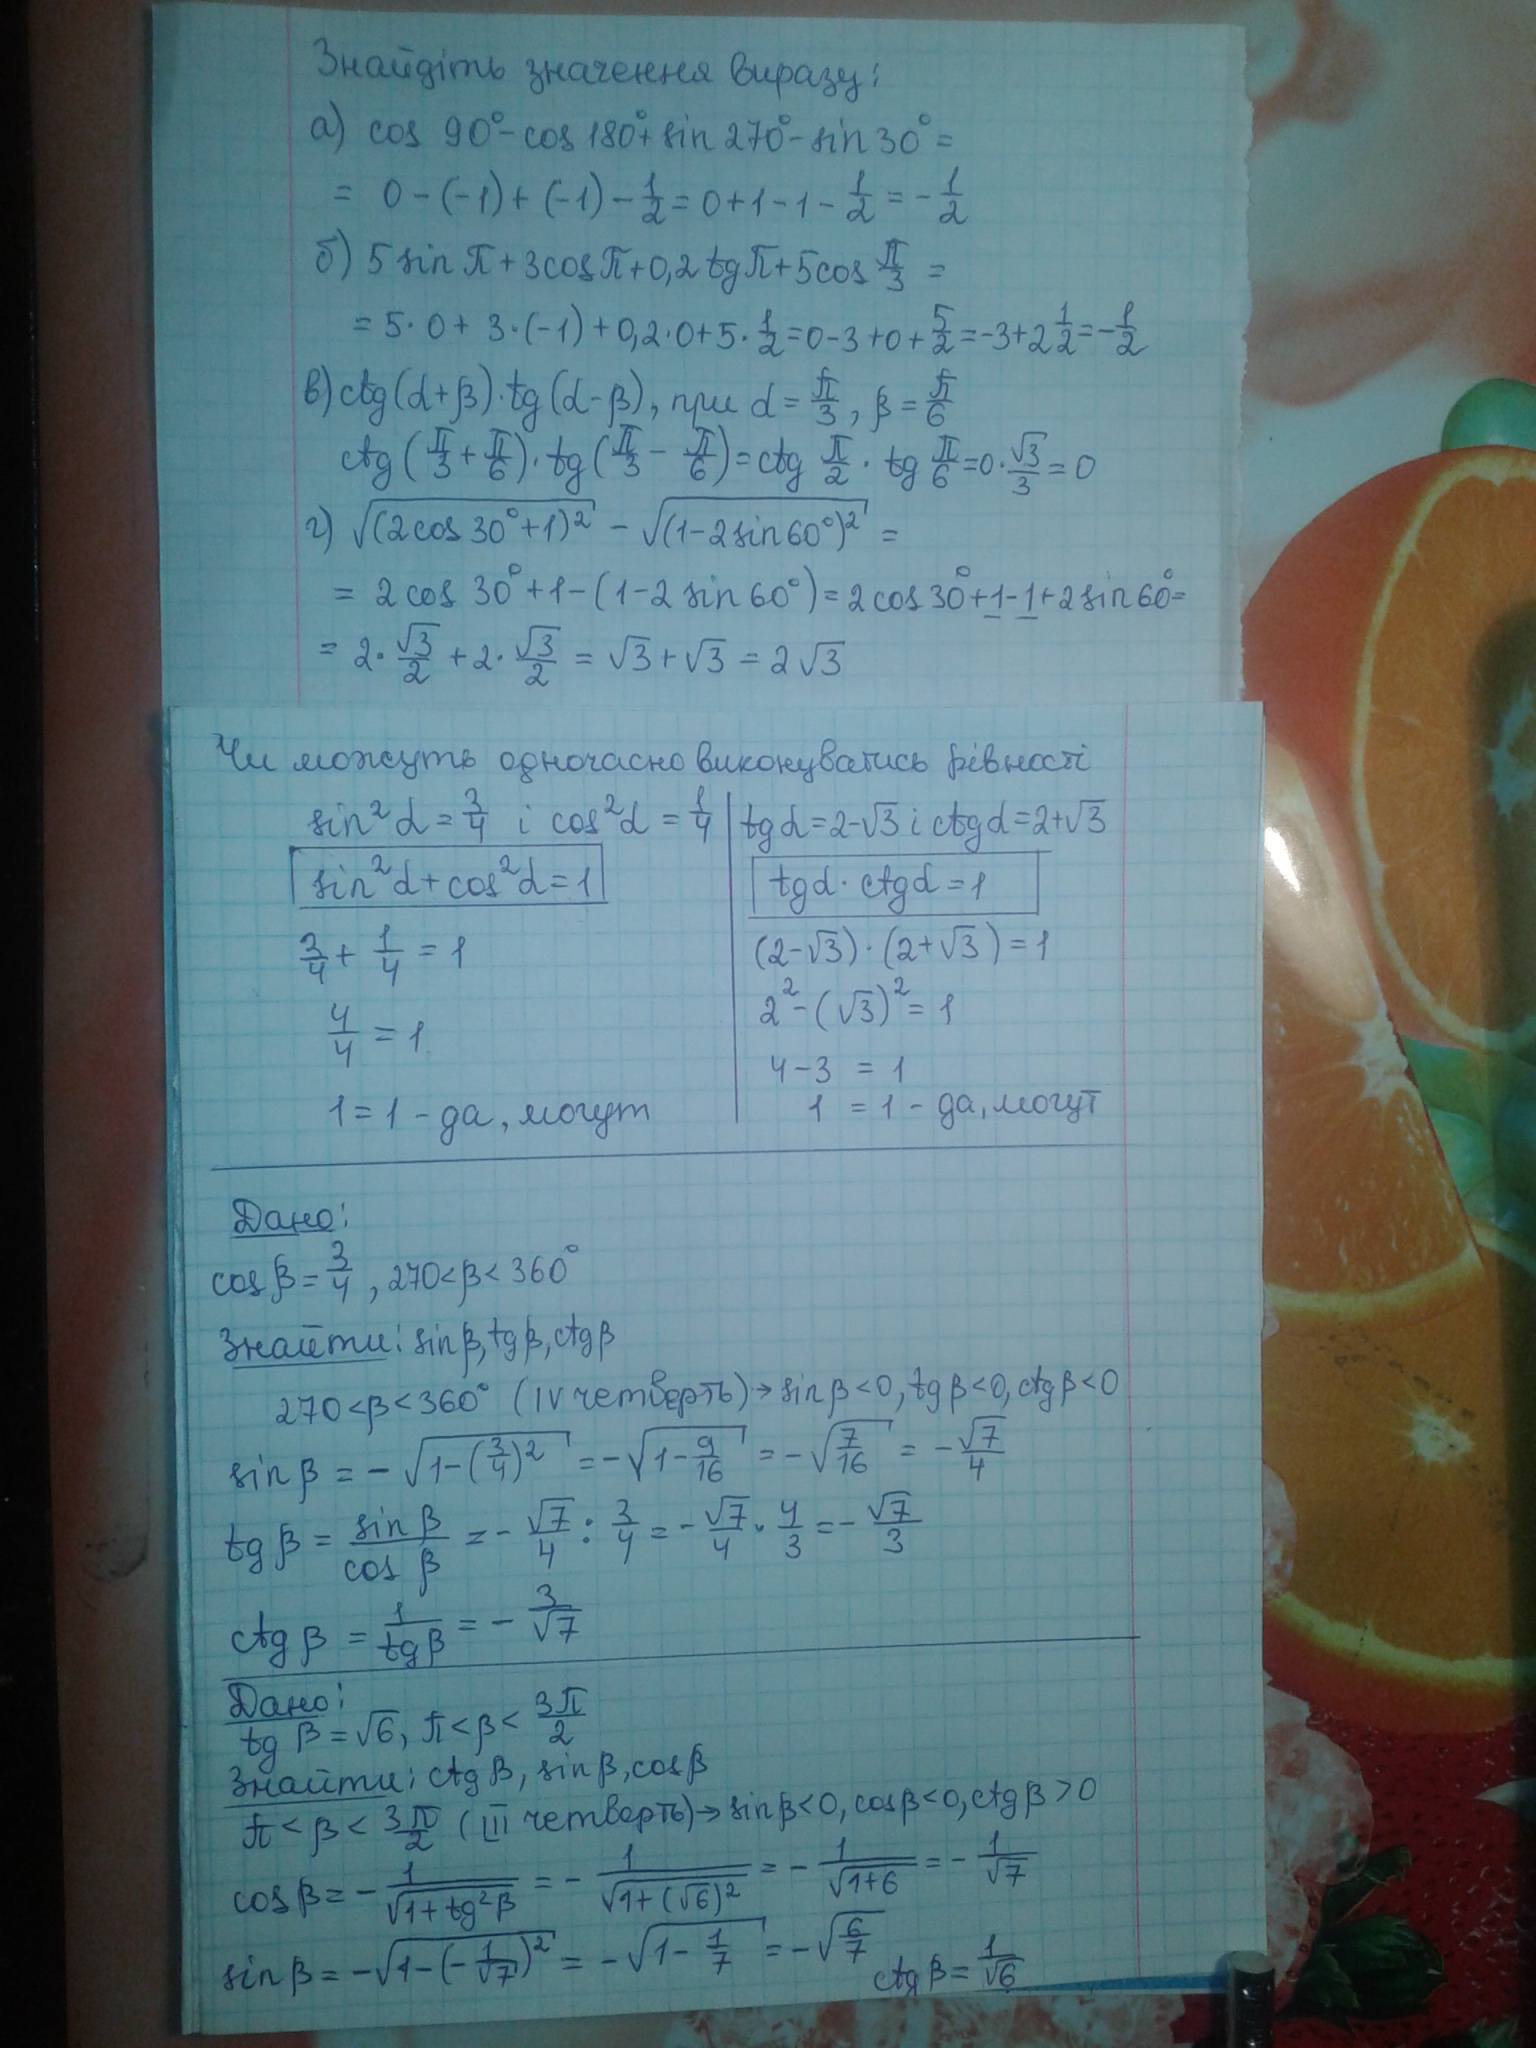 Знайдіть значення виразу:
а) cos 90° - cos 180° + sin 270° - sin 30° =
= 0 - (-1) + (-1) - 1/2 = 0 + 1 - 1 - 1/2 = - 1/2
б) 5 sin π + 3 cos π + 0,2 tg π + 5 cos π/3 =
= 5 · 0 + 3 · (-1) + 0,2 · 0 + 5 · 1/2 = 0 - 3 + 0 + 5/2 = -3 + 2 1/2 = - 1/2
в) ctg (α + β) · tg (α - β), при α = π/3, β = π/6
ctg (π/3 + π/6) · tg (π/3 - π/6) = ctg π/2 · tg π/6 = 0 · √3/3 = 0
г) √(2 cos 30° + 1)² - √(1 - 2 sin 60°)² =
= 2 cos 30° + 1 - (1 - 2 sin 60°) = 2 cos 30° + 1 - 1 + 2 sin 60° =
= 2 · √3/2 + 2 · √3/2 = √3 + √3 = 2√3
Чи можуть одночасно виконуватись рівності
sin² α = 3/4 і cos² α = 1/4
sin² α + cos² α = 1
3/4 + 1/4 = 1
4/4 = 1
1 = 1 - да, могут
tg α = 2 - √3 і ctg α = 2 + √3
tg α · ctg α = 1
(2 - √3) · (2 + √3) = 1
2² - (√3)² = 1
4 - 3 = 1
1 = 1 - да, могут
Дано:
cos β = 3/4, 270 < β < 360°
Знайти: sin β, tg β, ctg β
270 < β < 360° (IV четверть) → sin β < 0, tg β < 0, ctg β < 0
sin β = - √1 - (3/4)² = - √1 - 9/16 = - √7/16 = - √7/4
tg β = sin β/cos β = - √7/4 : 3/4 = - √7/4 · 4/3 = - √7/3
ctg β = 1/tg β = - 3/√7
Дано:
tg β = √6, π < β < 3π/2
Знайти: ctg β, sin β, cos β
π < β < 3π/2 (III четверть) → sin β < 0, cos β < 0, ctg β > 0
cos β = - 1/√1 + tg² β = - 1/√1 + (√6)² = - 1/√1 + 6 = - 1/√7
sin β = - √1 - (- 1/√7)² = - √1 - 1/7 = - √6/7 ctg β = 1/√6